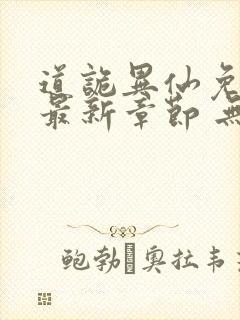 道詭異仙免
最新章節 無
鲍勃·奥拉韦